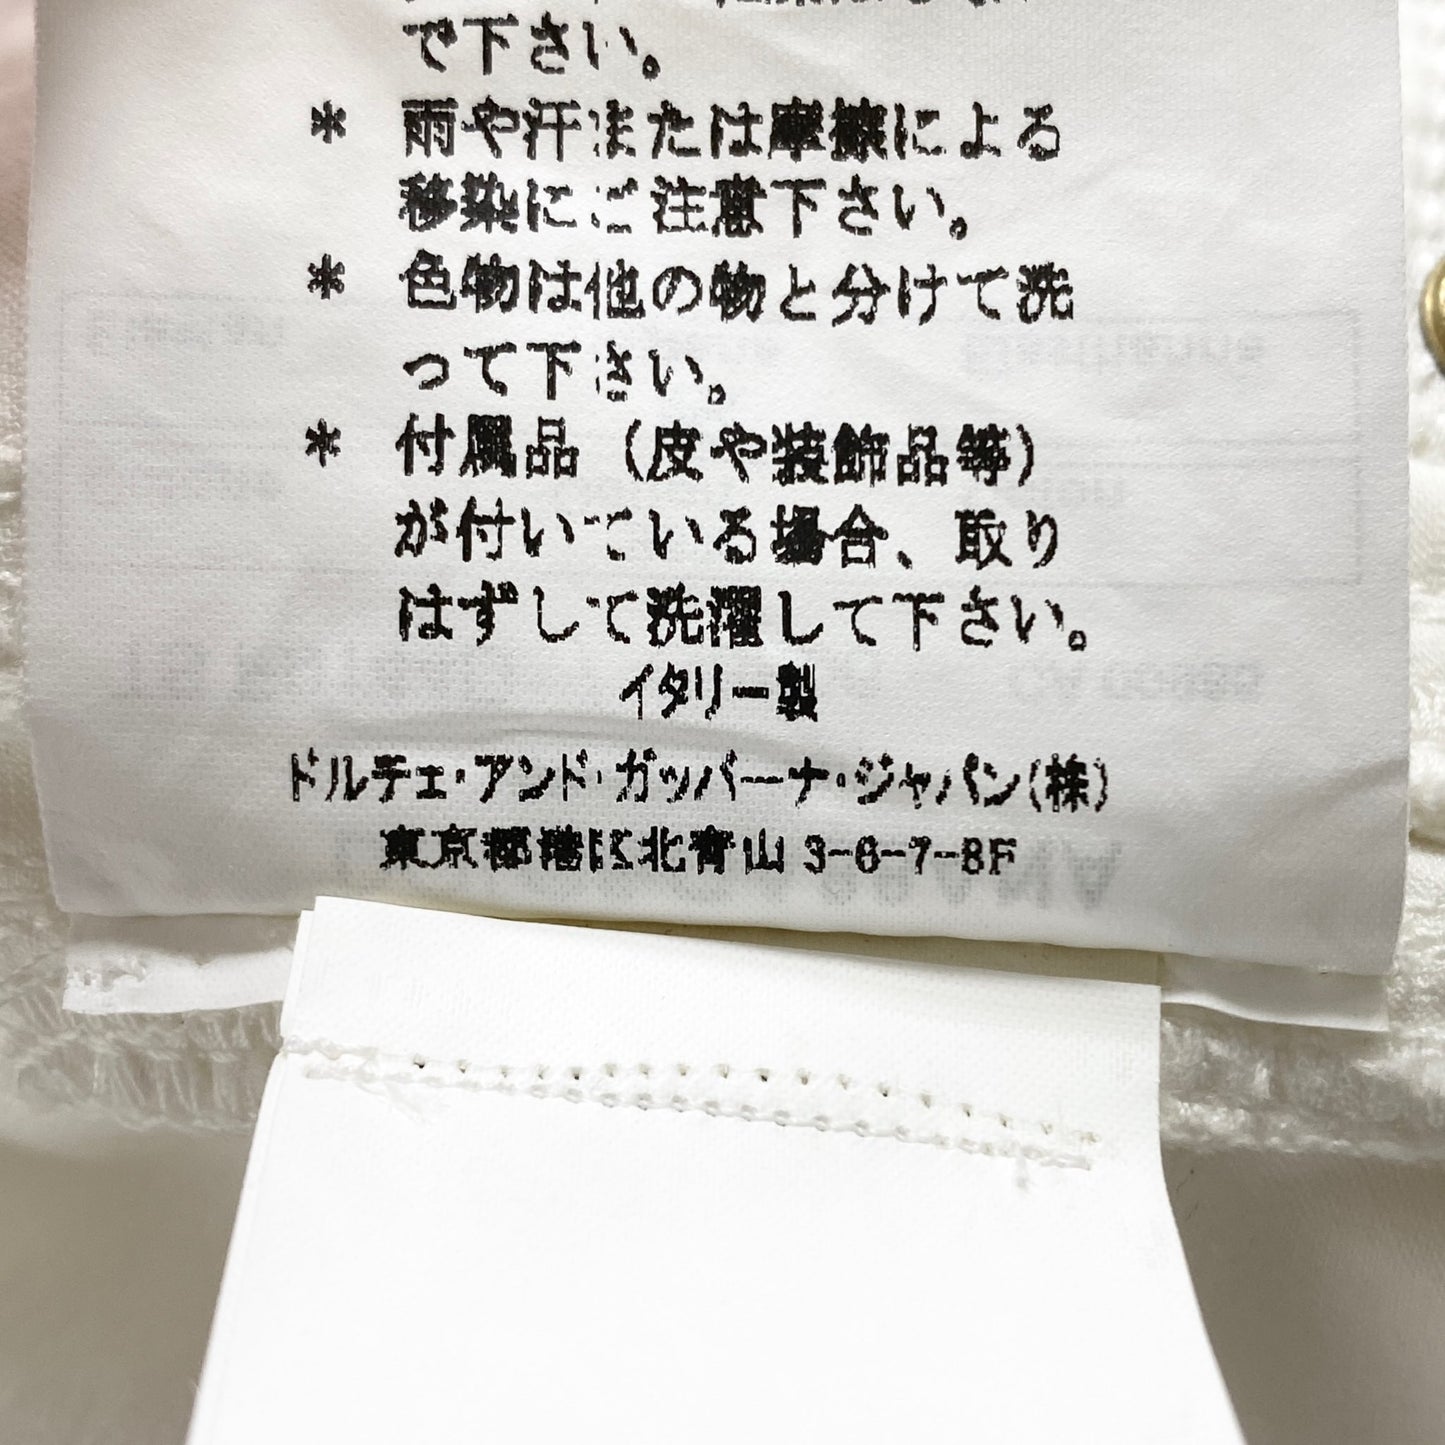 で下さい。
* 雨や汗または摩擦による
移染にご注意下さい。
* 色物は他の物と分けて洗
って下さい。
* 付属品（皮や装飾品等）
が付いている場合、取り
はずして洗濯して下さい。
イタリー製
ドルチェ・アンド・ガッバーナ・ジャパン(株)
東京都港区北青山 3-6-7-8F